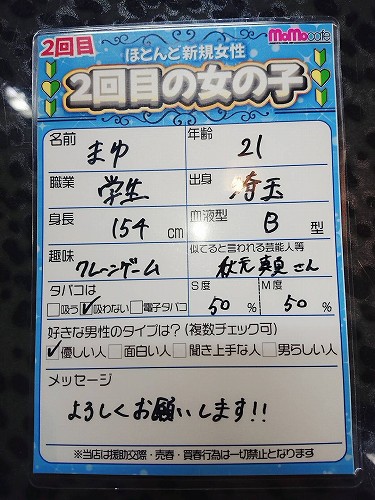 2回目
MoMocafe
ほとんど新規女性
2回目の女の子
名前
まゆ
年齢
21
職業
学生
出身
埼玉
身長
154cm
血液型
B型
趣味
クレーンゲーム
似てると言われる芸能人等
秋元真夏さん
タバコは
□吸う☑吸わない□電子タバコ
S度
50%
M度
50%
好きな男性のタイプは?(複数チェック可)
☑優しい人□面白い人□聞き上手な人□男らしい人
メッセージ
よろしくお願いします!!
※当店は援助交際・売春・買春行為は一切禁止となります